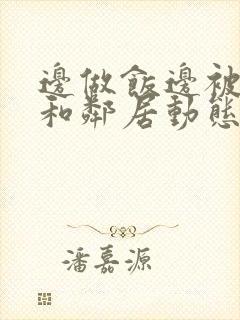 邊做飯邊被
和鄰居動態
潘嘉源